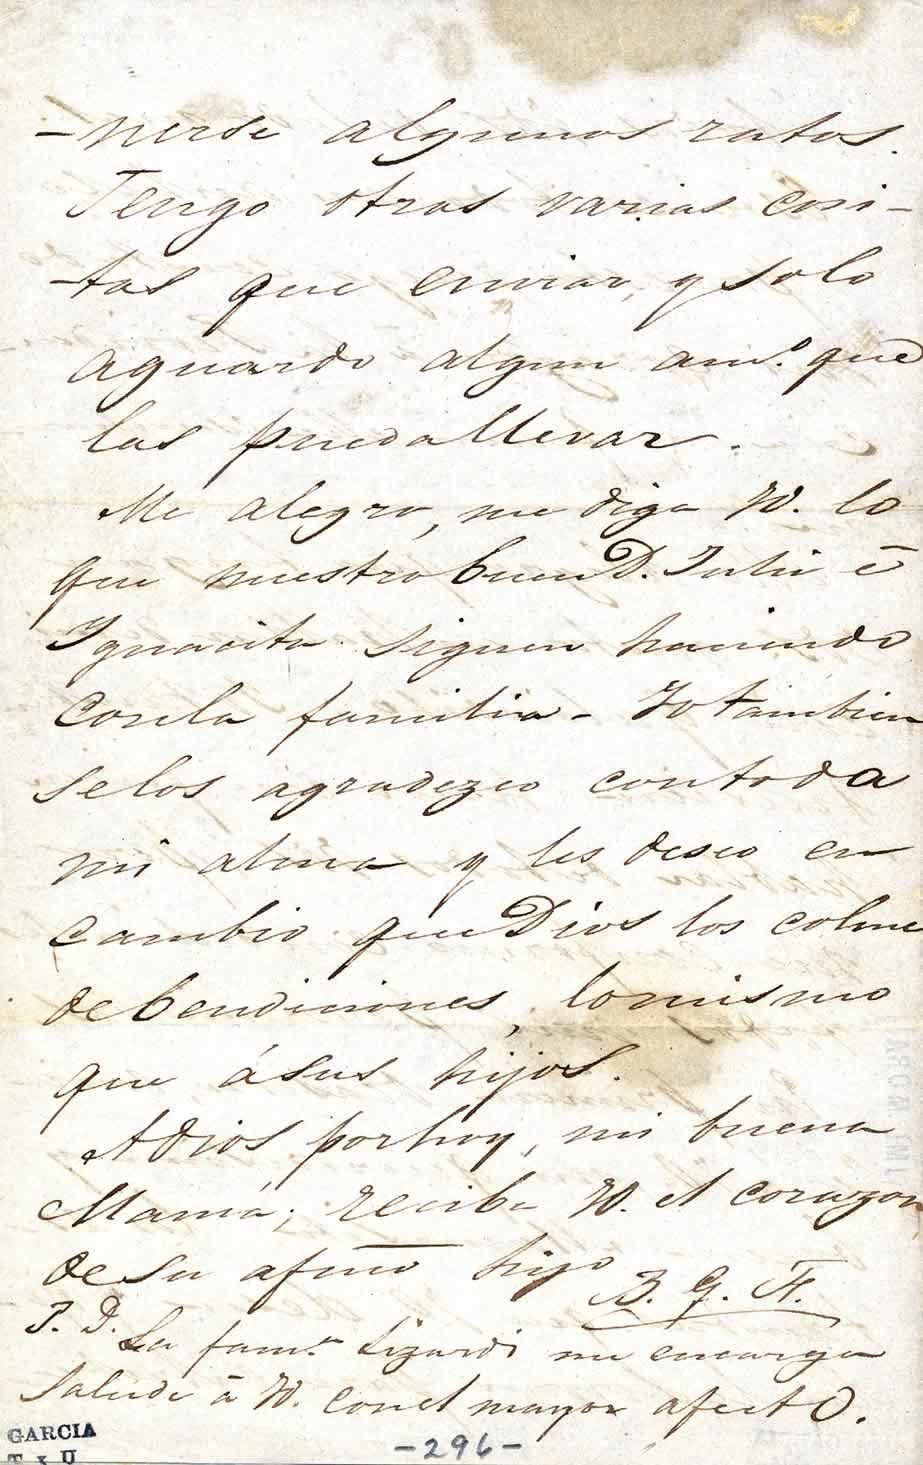 -nerse algunos ratos.
Tengo otras varias cosi-
-tas que enviar, y solo
aguardo algun am.º que
las pueda llevar.
Me alegro, me diga V. lo
que nuestro buen D. Julio é
Ygnacita siguen haciendo
con la familia - Yo tambien
se los agradezco con toda
mi alma y les deseo en
cambio que Dios los colme
de bendiciones, lo mismo
que á sus hijos.
Adios por hoy, mi buena
Mamá; reciba V. el corazon
de su afmo hijo B. G. F.
P. D. La fam.a Lizardi me encarga
salude á V. con el mayor afecto.
GARCIA
-296-